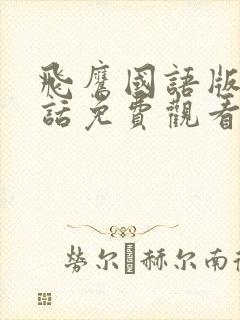 飛鷹國語版
話免費觀看
勞尔 赫尔南